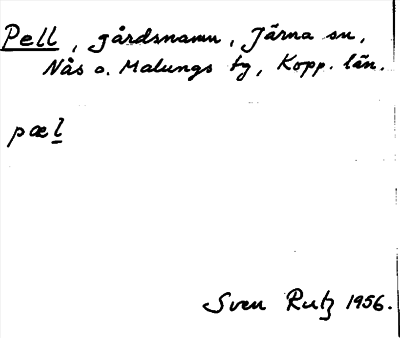 Pell, gårdsnamn, Järna sn,
Nås o. Malungs tg, Kopp. län.
pæl
Sven Rutz 1956.